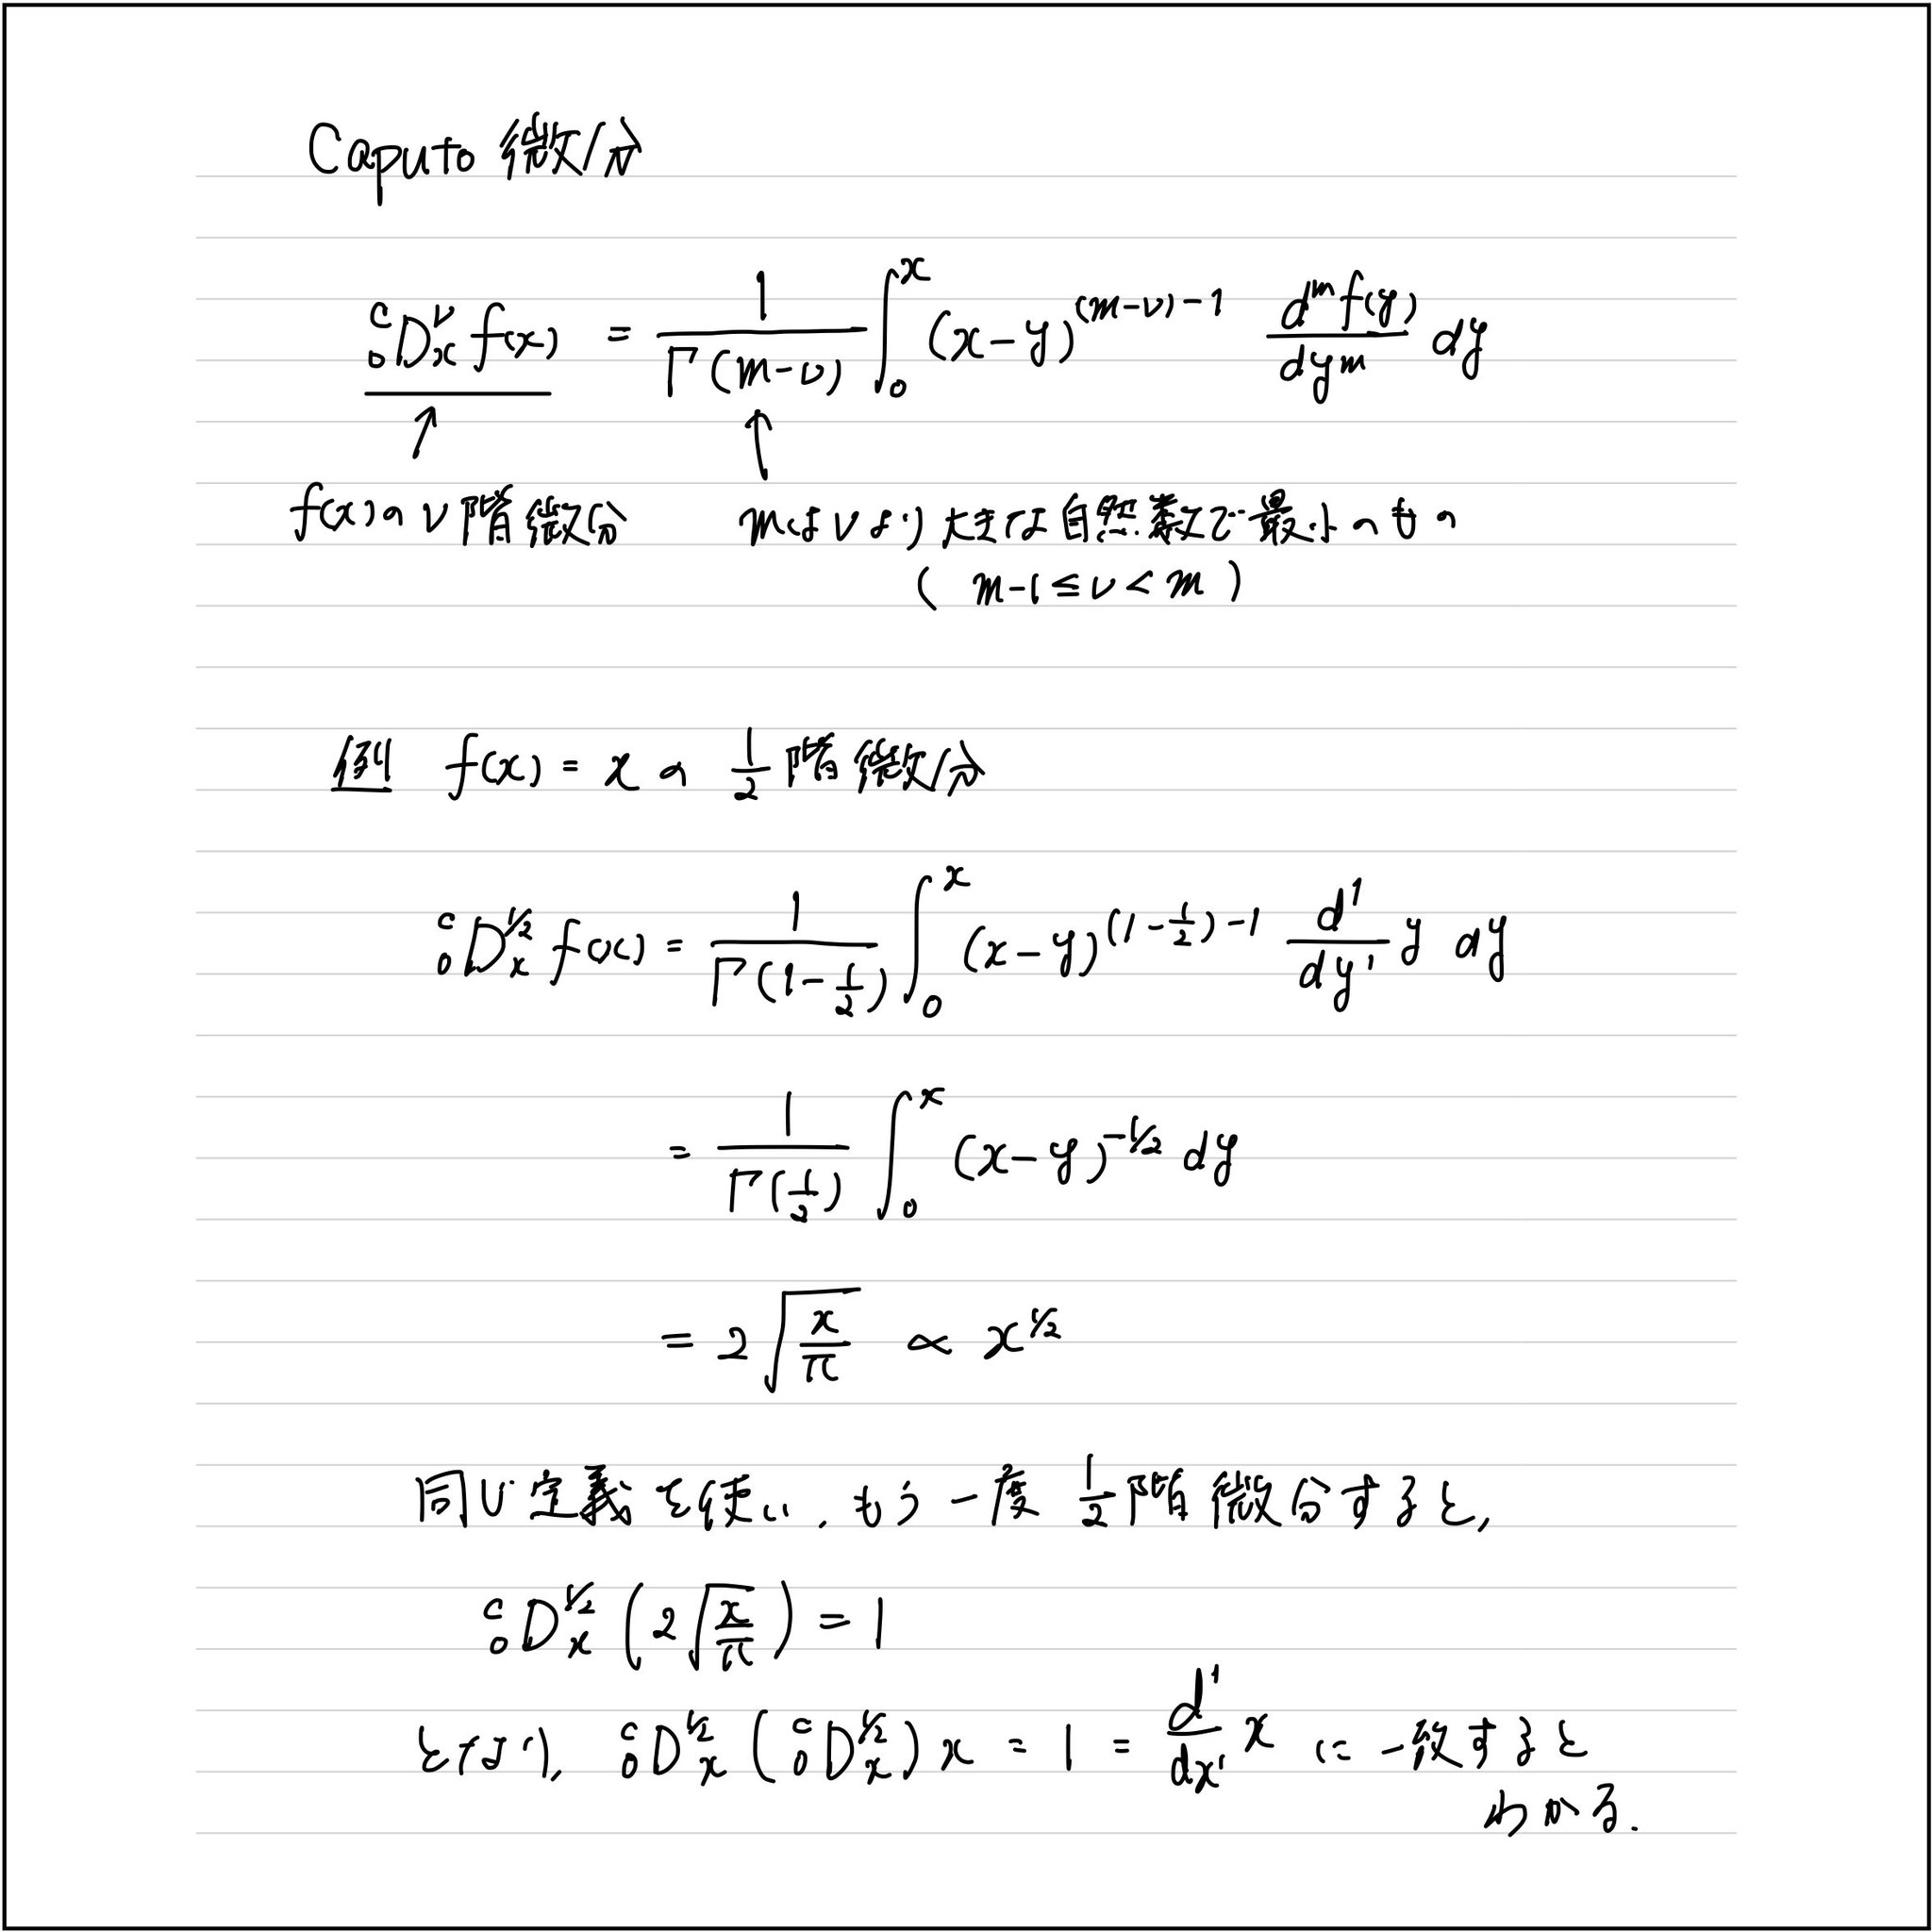 Caputo 微分
{}^{C}_{0}D^{ν}_{x} f(x) = \frac{1}{Γ(m-ν)} \int_{0}^{x} (x-y)^{(m-ν)-1} \frac{d^{m} f(y)}{dy^{m}} dy
↑ ↑
f(x)のν階微分 mはνより大きな自然数で最小のもの
(m-1≦ν<m)
例 f(x)=x の \frac{1}{2} 階微分
{}^{C}_{0}D^{1/2}_{x} f(x) = \frac{1}{Γ(1-\frac{1}{2})} \int_{0}^{x} (x-y)^{(1-\frac{1}{2})-1} \frac{d^{1}}{dy^{1}} y dy
= \frac{1}{Γ(\frac{1}{2})} \int_{0}^{x} (x-y)^{-1/2} dy
= 2\sqrt{\frac{x}{π}} ∝ x^{1/2}
同じ定義を使い、もう一度 \frac{1}{2} 階微分すると,
{}^{C}_{0}D^{1/2}_{x} (2\sqrt{\frac{x}{π}}) = 1
となり, {}^{C}_{0}D^{1/2}_{x} ({}^{C}_{0}D^{1/2}_{x}) x = 1 = \frac{d^{1}}{dx^{1}} x に一致すると
わかる.